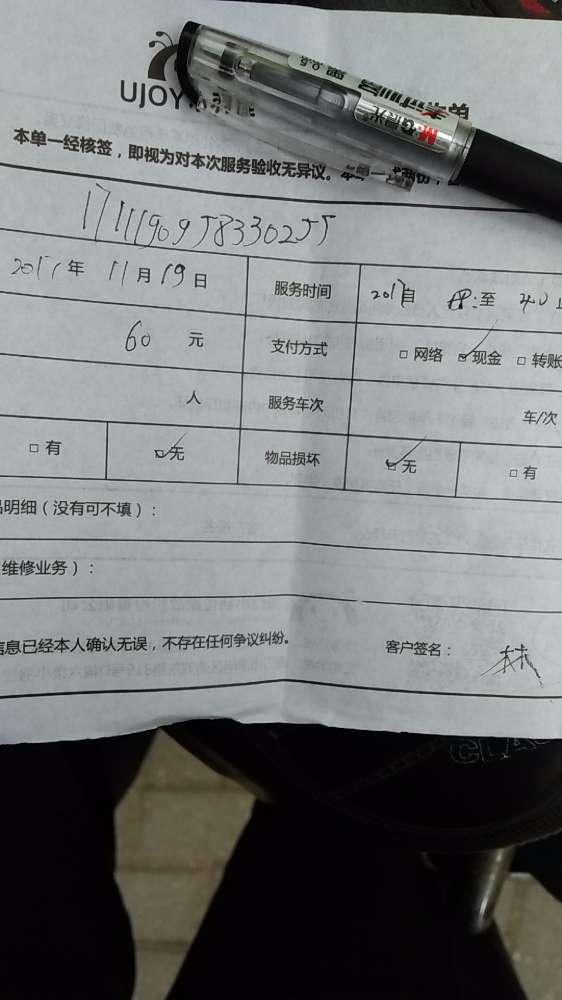 UJOY
单
本单一经核签，即视为对本次服务验收无异议。本单一
1711190958330255
2017年 11月19日 服务时间 自 至
60 元 支付方式 □网络 ☑现金 □转账
人 服务车次 车/次
□有 ☑无 物品损坏 ☑无 □有
明细（没有可不填）：
维修业务）：
信息已经本人确认无误，不存在任何争议纠纷。 客户签名：